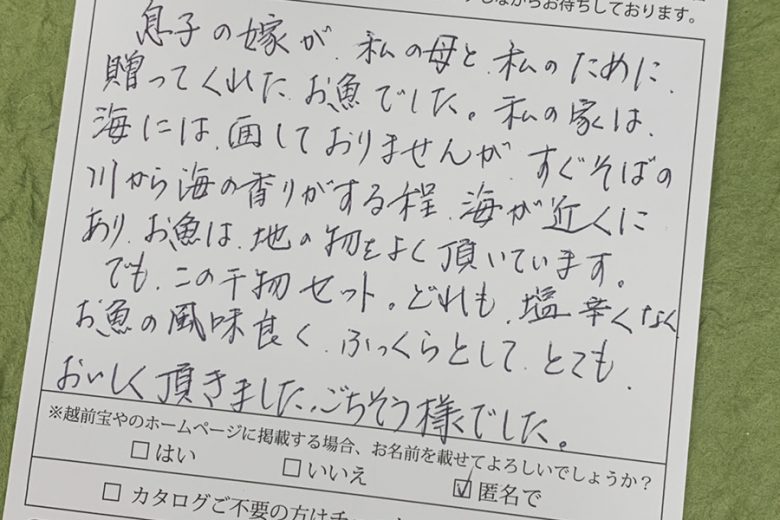 しながらお待ちしております。
息子の嫁が、私の母と、私のために、
贈ってくれた、お魚でした。私の家は、
海には、面しておりませんが、すぐそばの
川から海の香りがする程、海が近くに
あり、お魚は、地の物をよく頂いています。
でも、この干物セット。どれも、塩辛くなく
お魚の風味良く、ふっくらとして、とても、
おいしく頂きました。ごちそう様でした。
※越前宝やのホームページに掲載する場合、お名前を載せてよろしいでしょうか?
□はい □いいえ ☑匿名で
□ カタログご不要の方はチェ